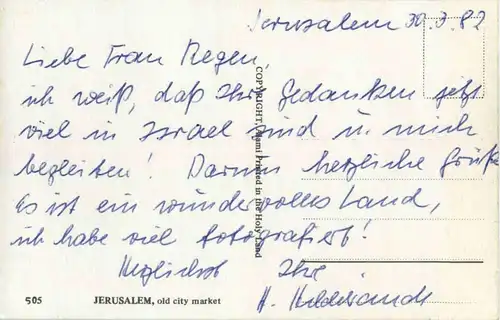 Jerusalem 30.3.82
Liebe Frau Regen,
ich weiß, daß Ihre Gedanken jetzt
viel in Israel sind u. mich
begleiten! Darum herzliche Grüße
Es ist ein wundervolles Land,
ich habe viel fotografiert!
Herzlichst Ihre
H. Hildebrandt
COPYRIGHT, Printed in the Holy Land
505 JERUSALEM, old city market